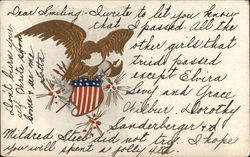 Dear Smiling:- I write to let you know
that I passed. All the
other girls that
tried passed
except Elvira
Levy and Grace
Wilbur, Dorothy
Sanderberger & I
Mildred Steed did not try. I hope
you will spent a jolly 4th.
Don't burn your
self. Write soon